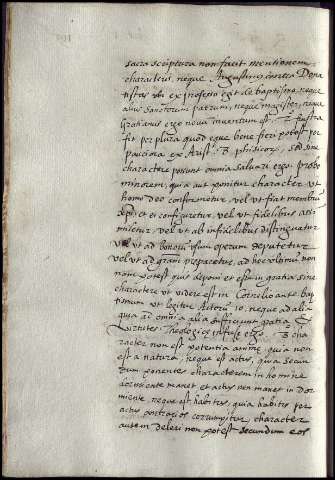 sacra scriptura non facit mentionem
characteris, neque Augustinus contra Dona
tistas ubi ex professo egit de baptismo, neque
alius Sanctorum patrum, neque magister, neque
Gratianus ergo novum inventum est. frustra
fit per plura quod eque bene fieri potest per
pauciora ex Arist. physicorum, sed sine
charactere possunt omnia salvari ergo. probo
minorem, quia aut ponitur character ut
homo deo conformetur, vel ut fiat membrum
et ei configuretur, vel ut fidelibus assi
miletur, vel ut ab infidelibus distinguatur
vel ut ad bonorum usum operum deputetur
vel ut ad gratiam preparetur, ad hoc ultimum non
nam potest quis deponi et esse in gratia sine
charactere ut videre est in Cornelio ante bap
tismum ut legitur Actorum 10. neque ad alia
quia ad omnia alia sufficiunt gratia et
virtutes Theologice infuse ergo. cha
racter non est potentia anime, quia non
est a natura, neque est actus, quia secun
dum ponentes characterem in homine
dormiente manet et actus non manet in dor
miente, neque est habitus, quia habitus per
actus contrarios corrumpitur, character
autem deleri non potest secundum eos